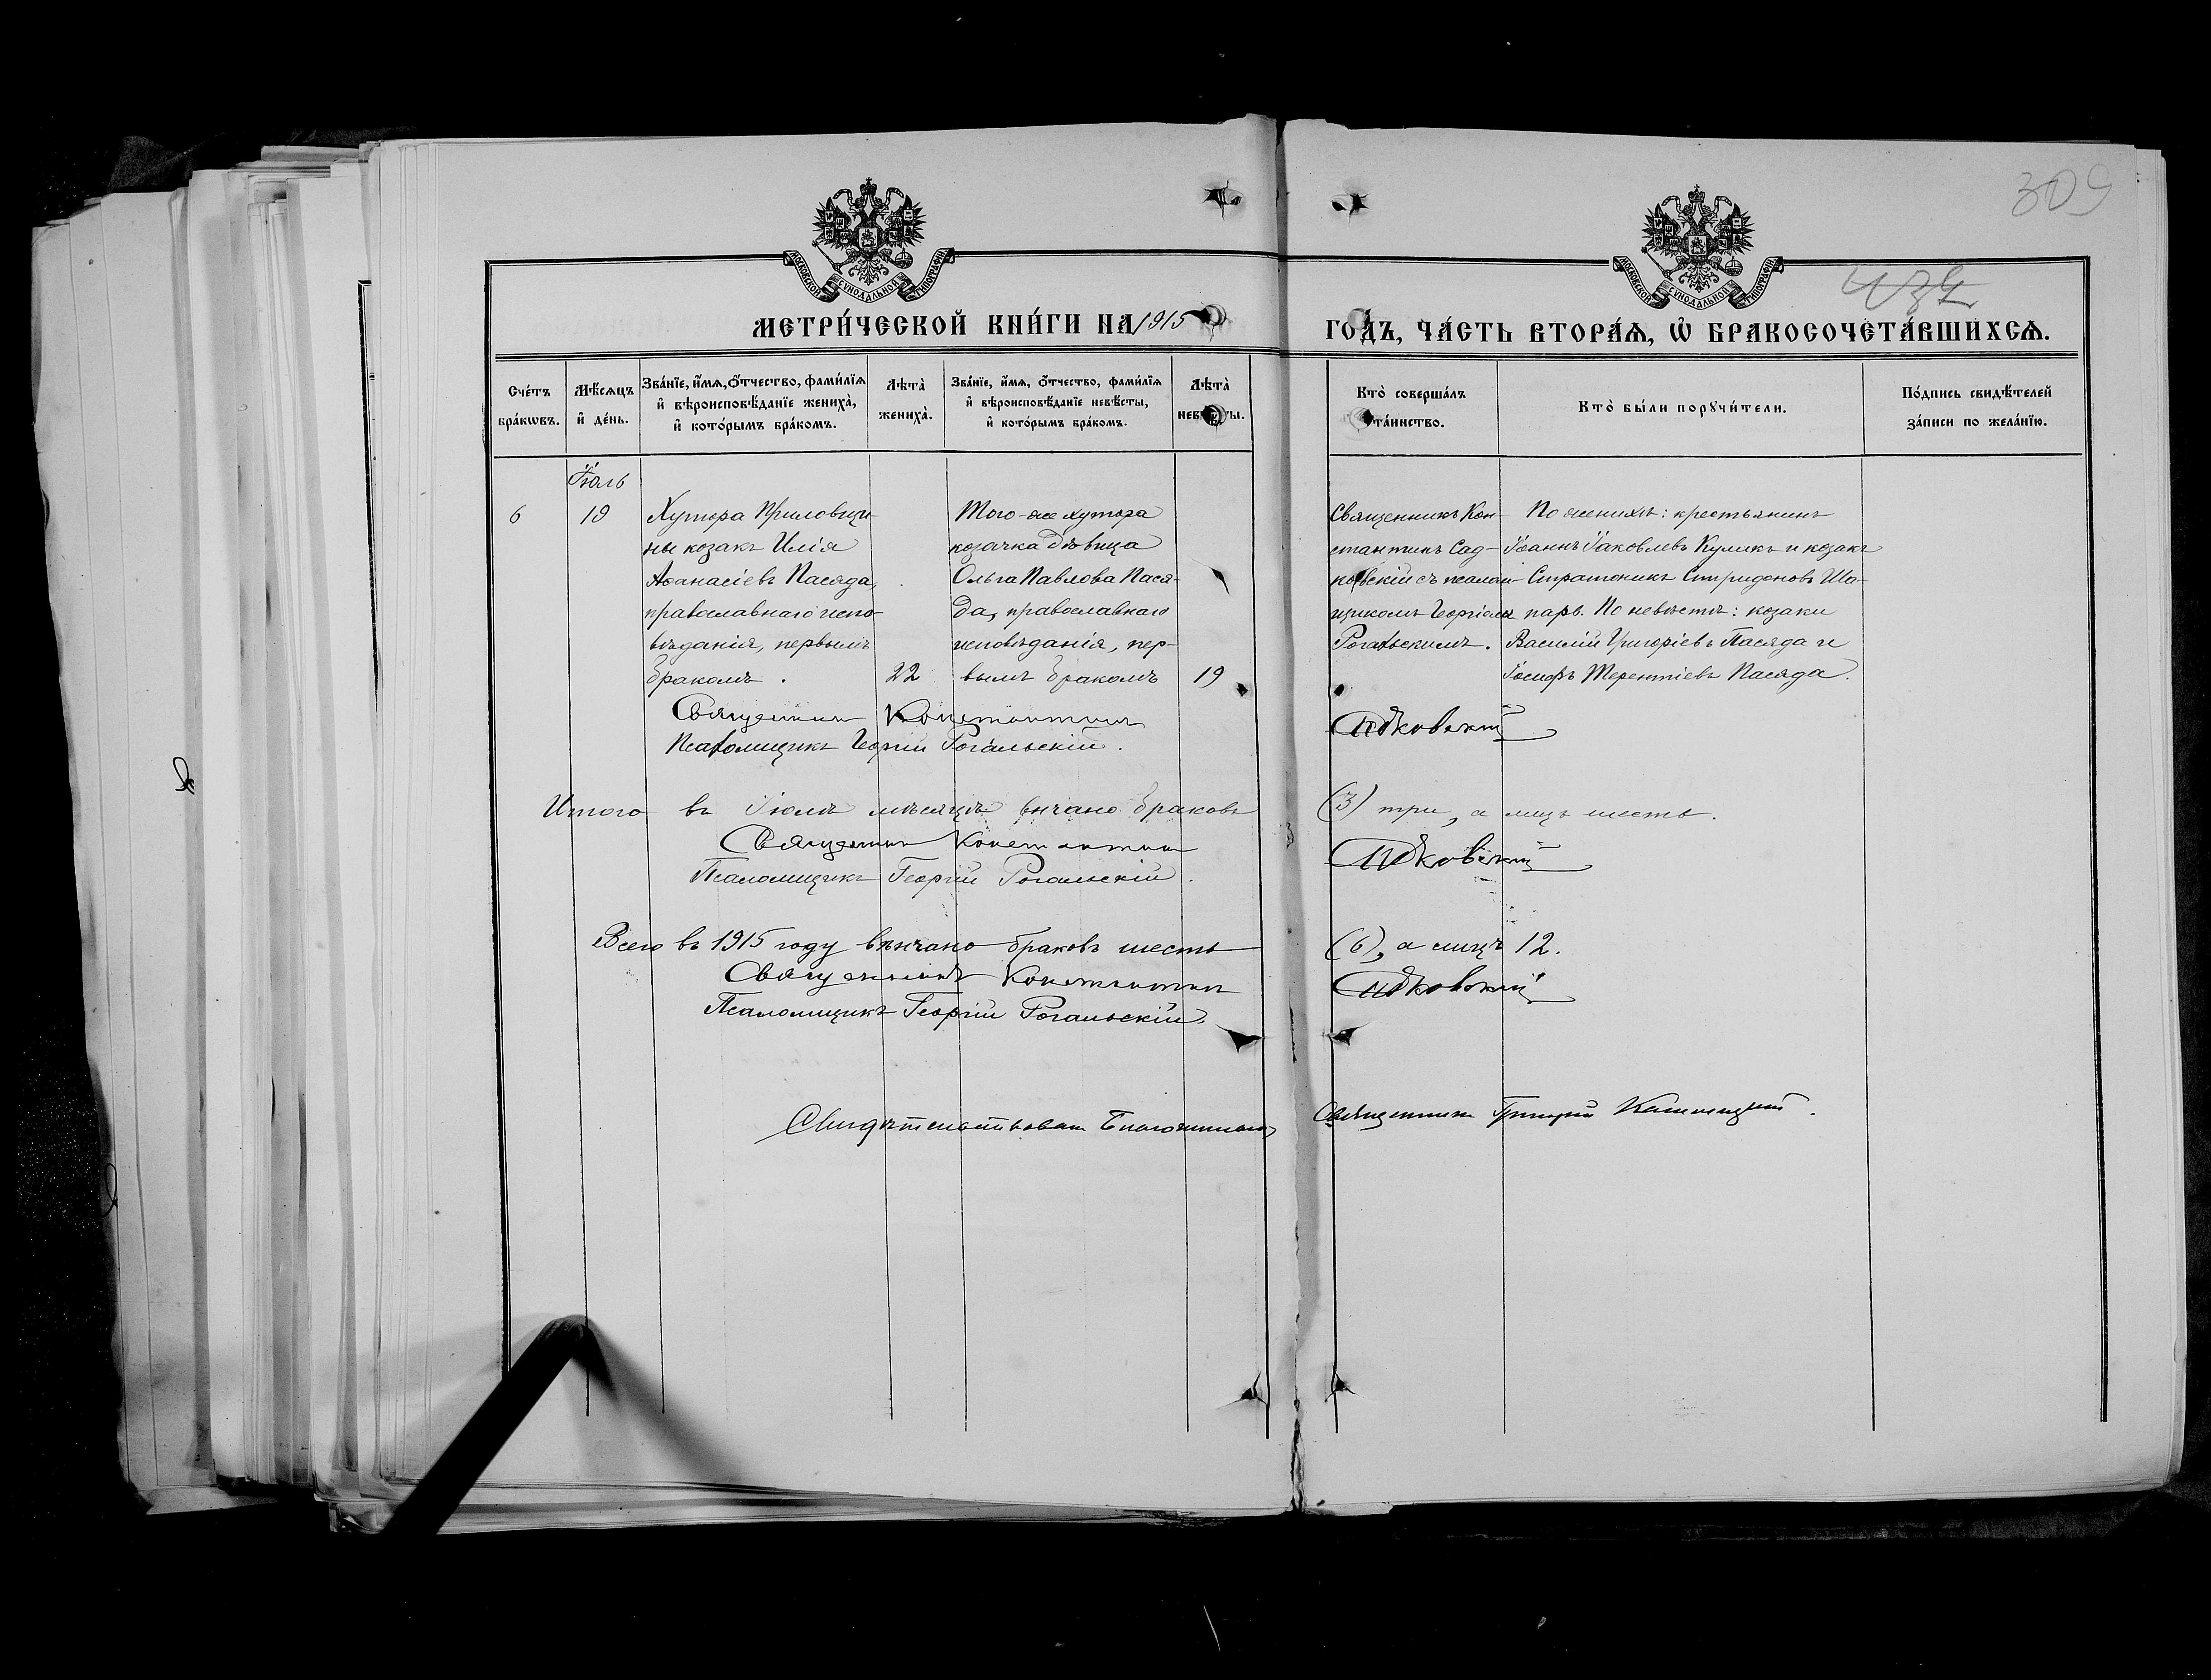 309
МОСКОВСКОЙ СѴНОДАЛЬНОЙ ТИПОГРАФІИ
МОСКОВСКОЙ СѴНОДАЛЬНОЙ ТИПОГРАФІИ
МЕТРИ́ЧЕСКОЙ КНИ́ГИ НА 1915 ГО́ДЪ, ЧА́СТЬ ВТОРА́Ѧ, Ѡ҆ БРАКОСОЧЕТА́ВШИХСѦ.
Сче́тъ бра́кѡвъ.
Мѣ́сѧцъ и҆ де́нь.
Зва́нїе, и҆́мѧ, ѻ҆́тчество, фами́лїѧ и҆ вѣроисповѣ́данїе жениха̀, и҆ кото́рымъ бра́комъ.
Лѣта̀ жениха̀.
Зва́нїе, и҆́мѧ, ѻ҆́тчество, фами́лїѧ и҆ вѣроисповѣ́данїе невѣ́сты, и҆ кото́рымъ бра́комъ.
Лѣта̀ невѣ́сты.
Кто̀ соверша́лъ та́инство.
Кто̀ бы́ли порꙋчи́тели.
По́дпись свидѣ́телей за́писи по жела́нїю.
Іюль
6
19
Хутора Приловщи-
ны козакъ Илія
Аѳанасіевъ Пасяда,
православнаго испо-
вѣданія, первымъ
бракомъ.
22
Того-же хутора
козачка дѣвица
Ольга Павлова Пася-
да, православнаго
исповѣданія, пер-
вымъ бракомъ
19
Священникъ Кон-
стантинъ Сад-
ковскій съ псалом-
щикомъ Георгіемъ
Рогальскимъ.
По женихѣ: крестьянинъ
Іоаннъ Іаковлевъ Куликъ и козакъ
Стратоникъ Спиридоновъ Ша-
паръ. По невѣстѣ: козаки
Василій Григоріевъ Пасяда и
Іосифъ Терентіевъ Пасяда.
Священникъ Константинъ Садковскій
Псаломщикъ Георгій Рогальскій.
Итого въ Іюлѣ мѣсяцѣ вѣнчано браковъ (3) три, а лицъ шесть.
Священникъ Константинъ Садковскій
Псаломщикъ Георгій Рогальскій.
Всего въ 1915 году вѣнчано браковъ шесть (6), а лицъ 12.
Священникъ Константинъ Садковскій
Псаломщикъ Георгій Рогальскій.
Свидѣтельствовалъ Благочинный Священникъ Григорій